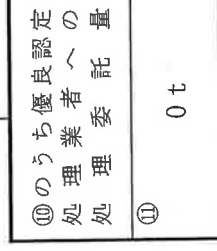 ⑩のうち優良認定
処理業者への
処理委託量
⑪
0 t